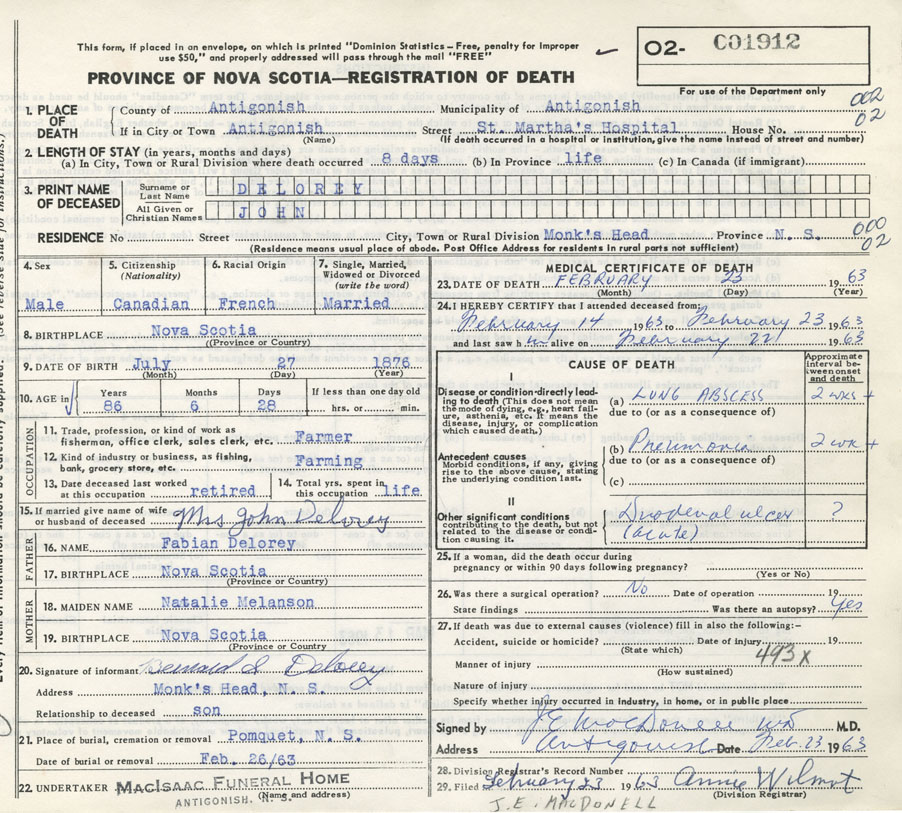 This form, if placed in an envelope, on which is printed "Dominion Statistics—Free, penalty for improper
use $50," and properly addressed will pass through the mail "FREE"
O2- C01912
PROVINCE OF NOVA SCOTIA—REGISTRATION OF DEATH
For use of the Department only
1. PLACE OF DEATH
County of Antigonish Municipality of Antigonish 002
If in City or Town Antigonish Street St. Martha's Hospital House No. 02
(Name) (If death occurred in a hospital or institution, give the name instead of street and number)
2. LENGTH OF STAY (in years, months and days)
(a) In City, Town or Rural Division where death occurred 8 days (b) In Province life (c) In Canada (if immigrant)
3. PRINT NAME OF DECEASED
Surname or Last Name DELOREY
All Given or Christian Names JOHN
RESIDENCE No Street City, Town or Rural Division Monk's Head Province N. S. 000 02
(Residence means usual place of abode. Post Office Address for residents in rural parts not sufficient)
4. Sex
Male
5. Citizenship (Nationality)
Canadian
6. Racial Origin
French
7. Single, Married, Widowed or Divorced (write the word)
Married
8. BIRTHPLACE Nova Scotia
(Province or Country)
9. DATE OF BIRTH July 27 1876
(Month) (Day) (Year)
10. AGE in
Years Months Days If less than one day old
86 6 28 hrs. or min.
OCCUPATION
11. Trade, profession, or kind of work as
fisherman, office clerk, sales clerk, etc. Farmer
12. Kind of industry or business, as fishing,
bank, grocery store, etc. Farming
13. Date deceased last worked
at this occupation retired
14. Total yrs. spent in
this occupation life
15. If married give name of wife
or husband of deceased Mrs John Delorey
FATHER
16. NAME Fabian Delorey
17. BIRTHPLACE Nova Scotia
(Province or Country)
MOTHER
18. MAIDEN NAME Natalie Melanson
19. BIRTHPLACE Nova Scotia
(Province or Country)
20. Signature of informant Bernard S Delorey
Address Monk's Head, N. S.
Relationship to deceased son
21. Place of burial, cremation or removal Pomquet, N. S.
Date of burial or removal Feb. 26/63
22. UNDERTAKER MACISAAC FUNERAL HOME
(Name and address)
ANTIGONISH, N. S.
MEDICAL CERTIFICATE OF DEATH
23. DATE OF DEATH FEBRUARY 23 1963
(Month) (Day) (Year)
24. I HEREBY CERTIFY that I attended deceased from:
February 14 1963 to February 23 1963
and last saw him alive on February 22 1963
CAUSE OF DEATH
Approximate interval between onset and death
I
Disease or condition directly leading to death (This does not mean the mode of dying, e.g., heart failure, asthenia, etc. It means the disease, injury, or complication which caused death.)
(a) LUNG ABSCESS 2 wks +
due to (or as a consequence of)
Antecedent causes
Morbid conditions, if any, giving rise to the above cause, stating the underlying condition last.
(b) Pneumonia 2 wk +
due to (or as a consequence of)
(c)
II
Other significant conditions
contributing to the death, but not related to the disease or condition causing it.
Duodenal ulcer ?
(acute)
25. If a woman, did the death occur during
pregnancy or within 90 days following pregnancy?
(Yes or No)
26. Was there a surgical operation? No Date of operation 19
State findings Was there an autopsy? Yes
27. If death was due to external causes (violence) fill in also the following:—
Accident, suicide or homicide? Date of injury 19
(State which)
493X
Manner of injury
(How sustained)
Nature of injury
Specify whether injury occurred in industry, in home, or in public place
Signed by J E MacDonell MD M.D.
Address Antigonish Date Feb. 23 1963
28. Division Registrar's Record Number
29. Filed February 23 1963 Annie Wilmot
(Division Registrar)
J. E. MACDONELL